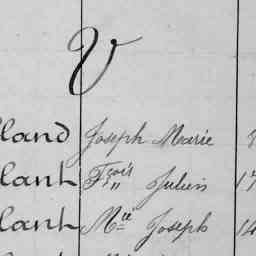 V
lland Joseph Marie
lant Fçois " Julien 17
lant Mie Joseph 14